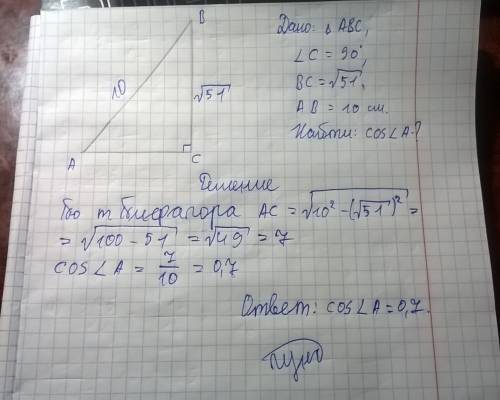 B
10
√51
A
C
Дано: △ABC,
∠C = 90°,
BC = √51,
AB = 10 см.
Найти: cos∠A-?
Решение
По т Пифагора AC = √10² - (√51)² =
= √100 - 51 = √49 = 7
cos∠A = 7/10 = 0,7
Ответ: cos∠A = 0,7.